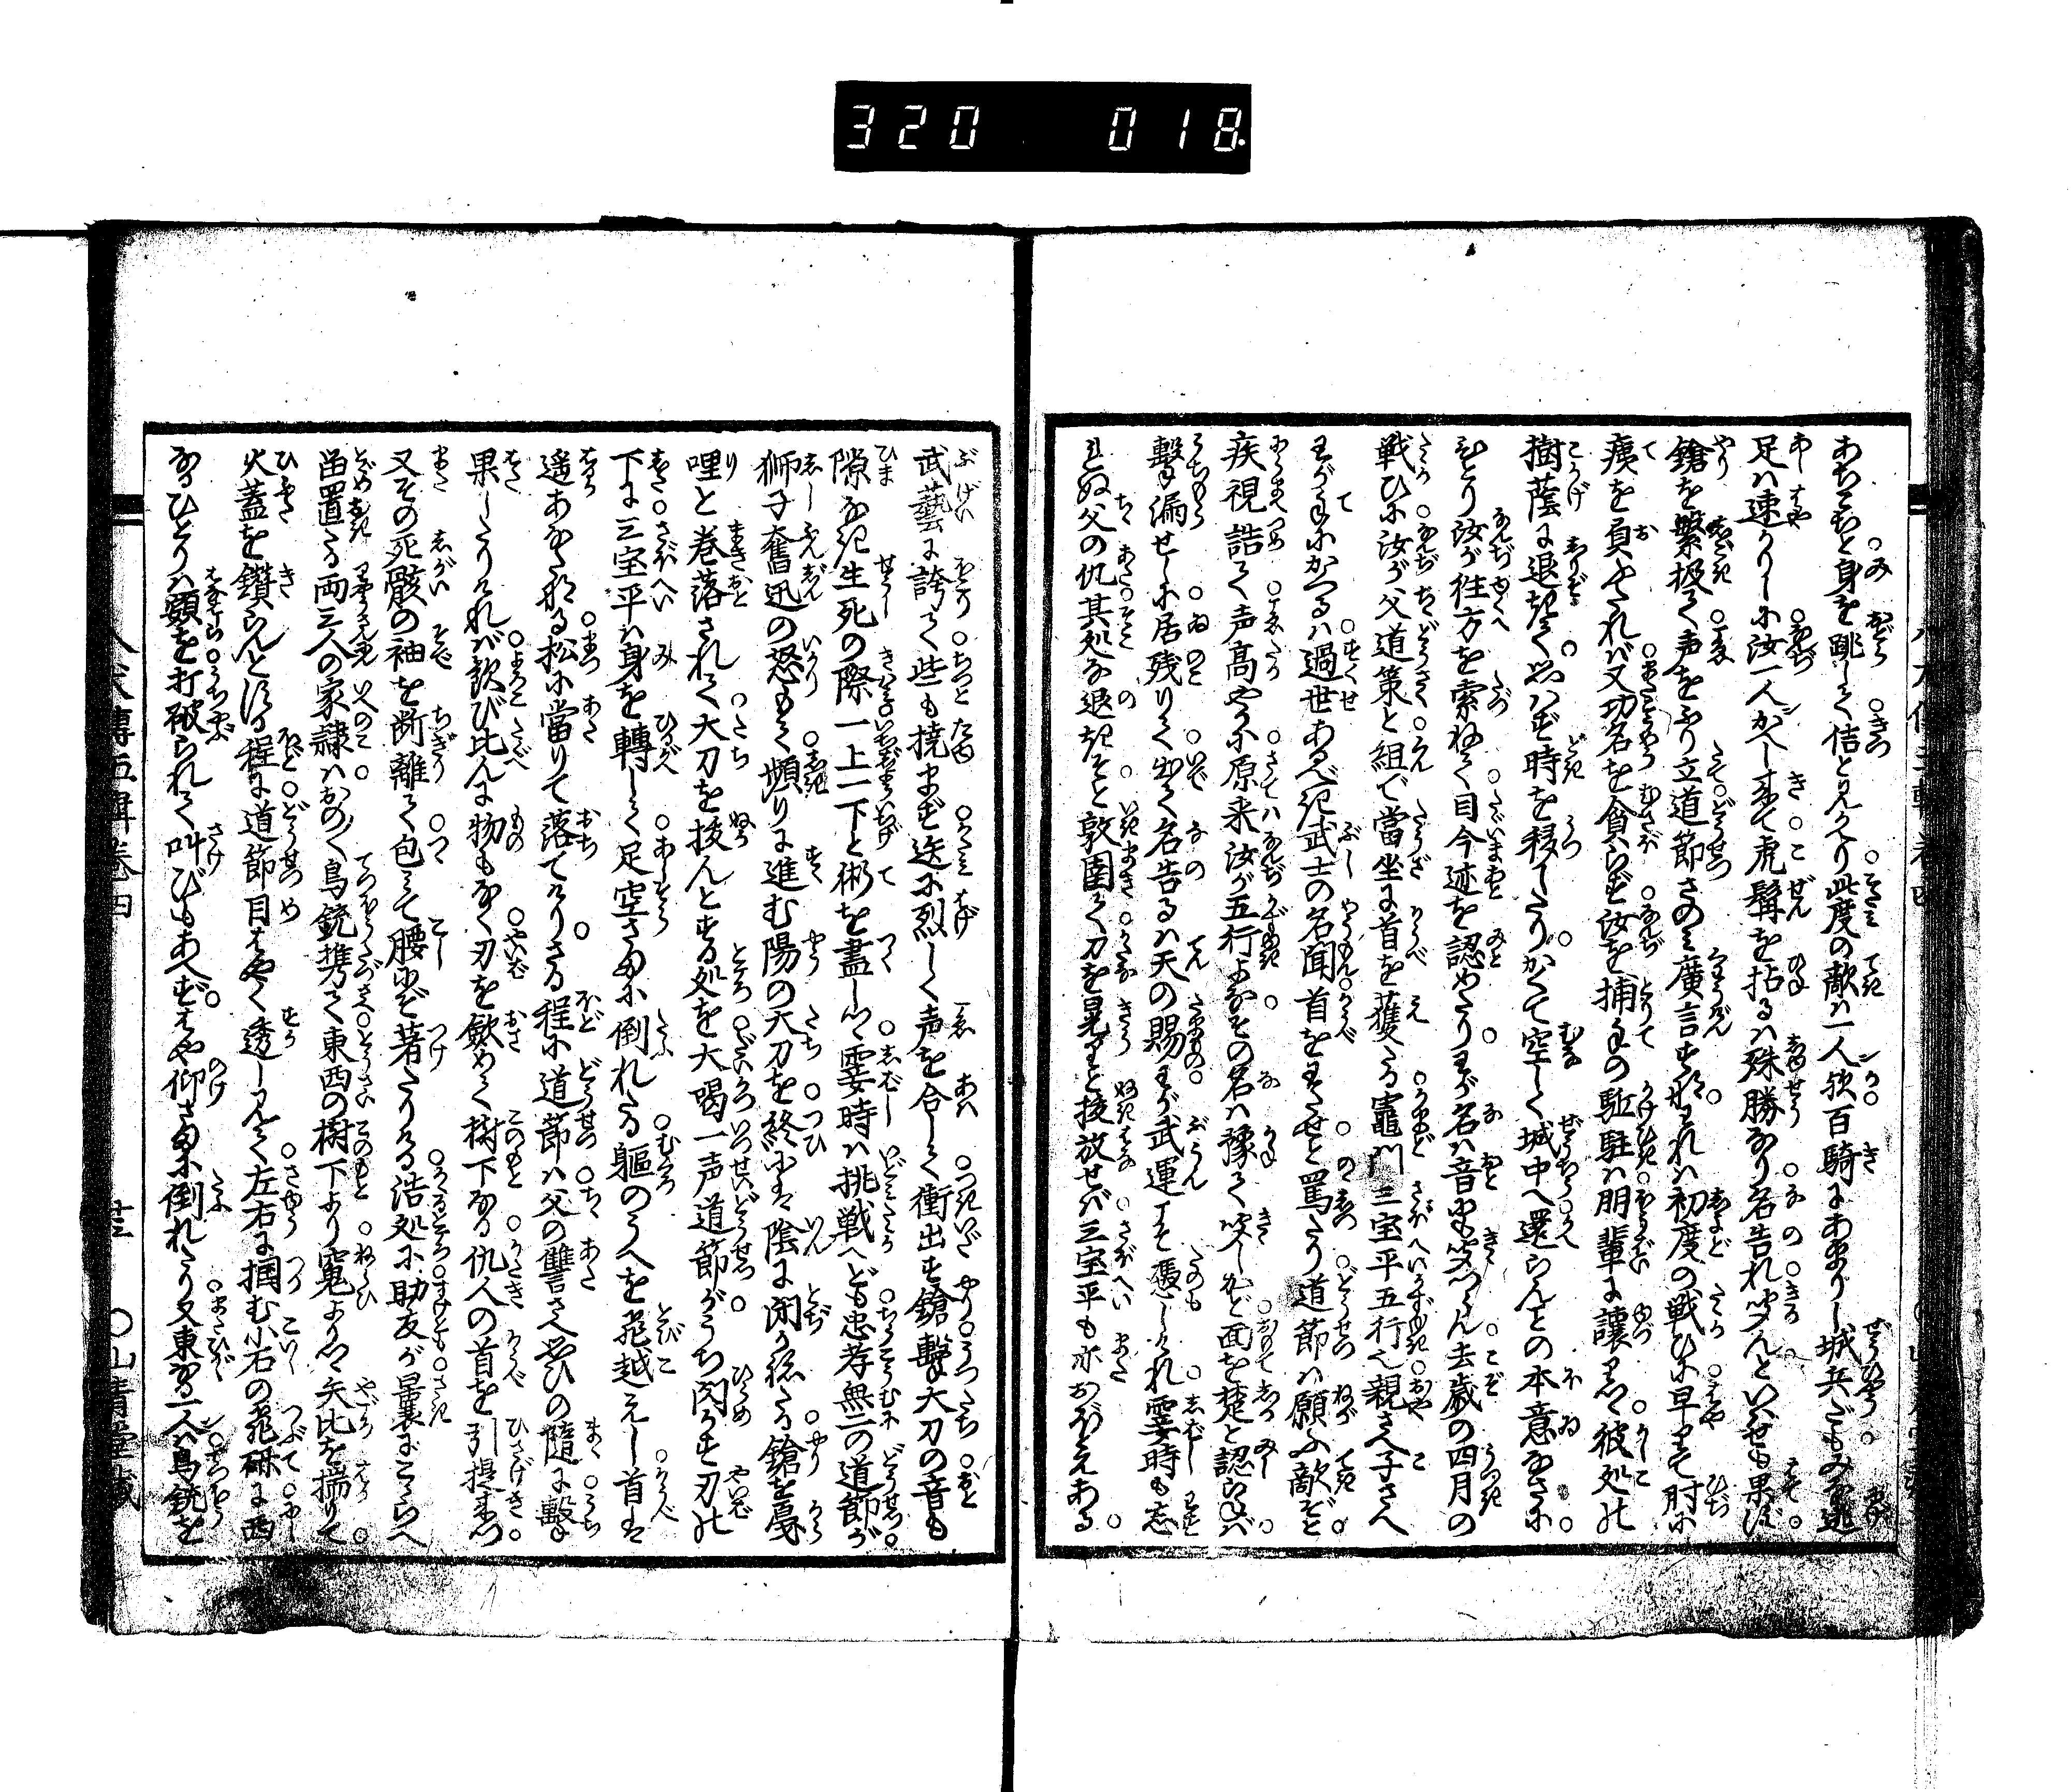 320 018
あちこちと身を跳らして佶と見かへり此度の敵は一人歟百騎にあまりし城兵どもみな逃
足は速かりしに汝一人かへし来て虎髯を拈るは殊勝なり名告れ聞んといはせも果ず
鎗を繋扱て声をふり立道節さのみ廣言すな。われは初度の戦ひに早りて肘に
痍を負たれば又功名を貪らず汝を捕手の駈駐は朋輩に讓りて彼処の
樹蔭に退きて思はず時を移したり。かくて空しく城中へ還らんとの本意なさに
ひとり汝が往方を索ねて目今迹を認めたり。わが名は音にも聞つらん去歳の四月の
戦ひに汝が父道策と組で當坐に首を獲たる竈門三宝平五行也親さへ子さへ
わが手にかゝるは過世あるべき武士の名聞首をわたせと罵たり道節は願ふ敵ぞと
疾視詰て声高やかに原来汝が五行よなその名は豫て聞しかど面を楚と認らねば
撃漏せしに居残りて出て名告るは天の賜わが武運こそ憑しけれ霎時も忘
れぬ父の仇其処な退きそと敦圉て刀を晃りと抜放せば三宝平も亦おぼえある
武藝に誇て些も撓まず迭に烈しく声を合して衝出す鎗撃大刀の音も
隙なき生死の際一上一下と術を盡しつ霎時は挑戦へども忠孝無二の道節が
獅子奮迅の怒もて頻りに進む陽の大刀を終には陰に閉かねたる鎗を戞
哩と巻落されて大刀を抜んとする処を大喝一声道節がうち閃かす刃の
下に三宝平は身を轉して足空さまに倒れたる軀のうへを飛越えし首は
遥あなたなる松に當りて落てけりさる程に道節は父の讐さへ思ひの隨に撃
果したりければ歓び比んに物もなく刃を歛めて樹下なる仇人の首を引提来つ
又その死骸の袖を断離て包みて腰にぞ著たりける浩処に助友が曩にこゝらへ
畄置たる両三人の家隷はおの〳〵鳥銃携て東西の樹下より窺よりつゝ矢比を揣りて
火蓋を鑽らんとする程に道節目はやく透し見て左右に掴む小石の飛礫に西
なるひとりは額を打破られて叫びもあへず。はや仰さまに倒れたり又東なる一人は鳥銃を
八犬傳五輯巻四
○山青堂藏